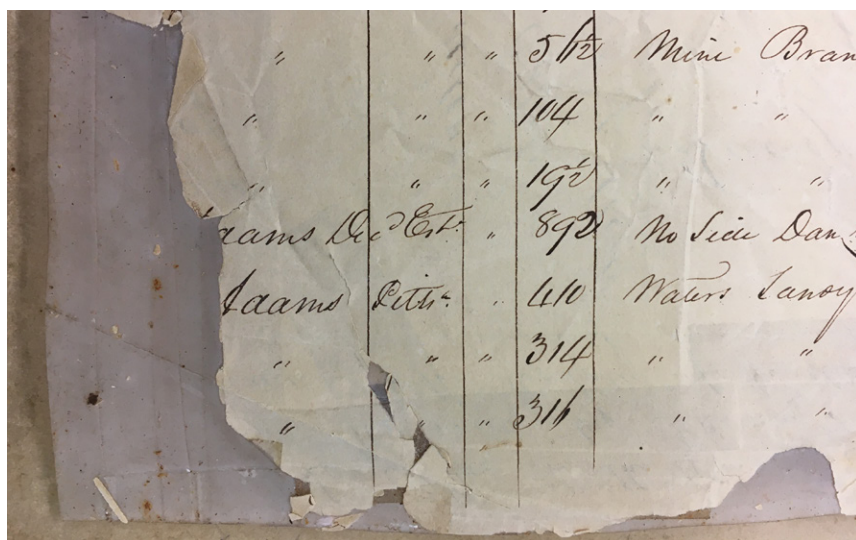 " " " 51½ Mine Bran
" " " 104 " "
" " " 19½ " "
dams Dec'd Est. " 892 No Side Dan
Adams Pitts. " 410 Waters Sandy
" " " 314 " "
" " " 316 " "